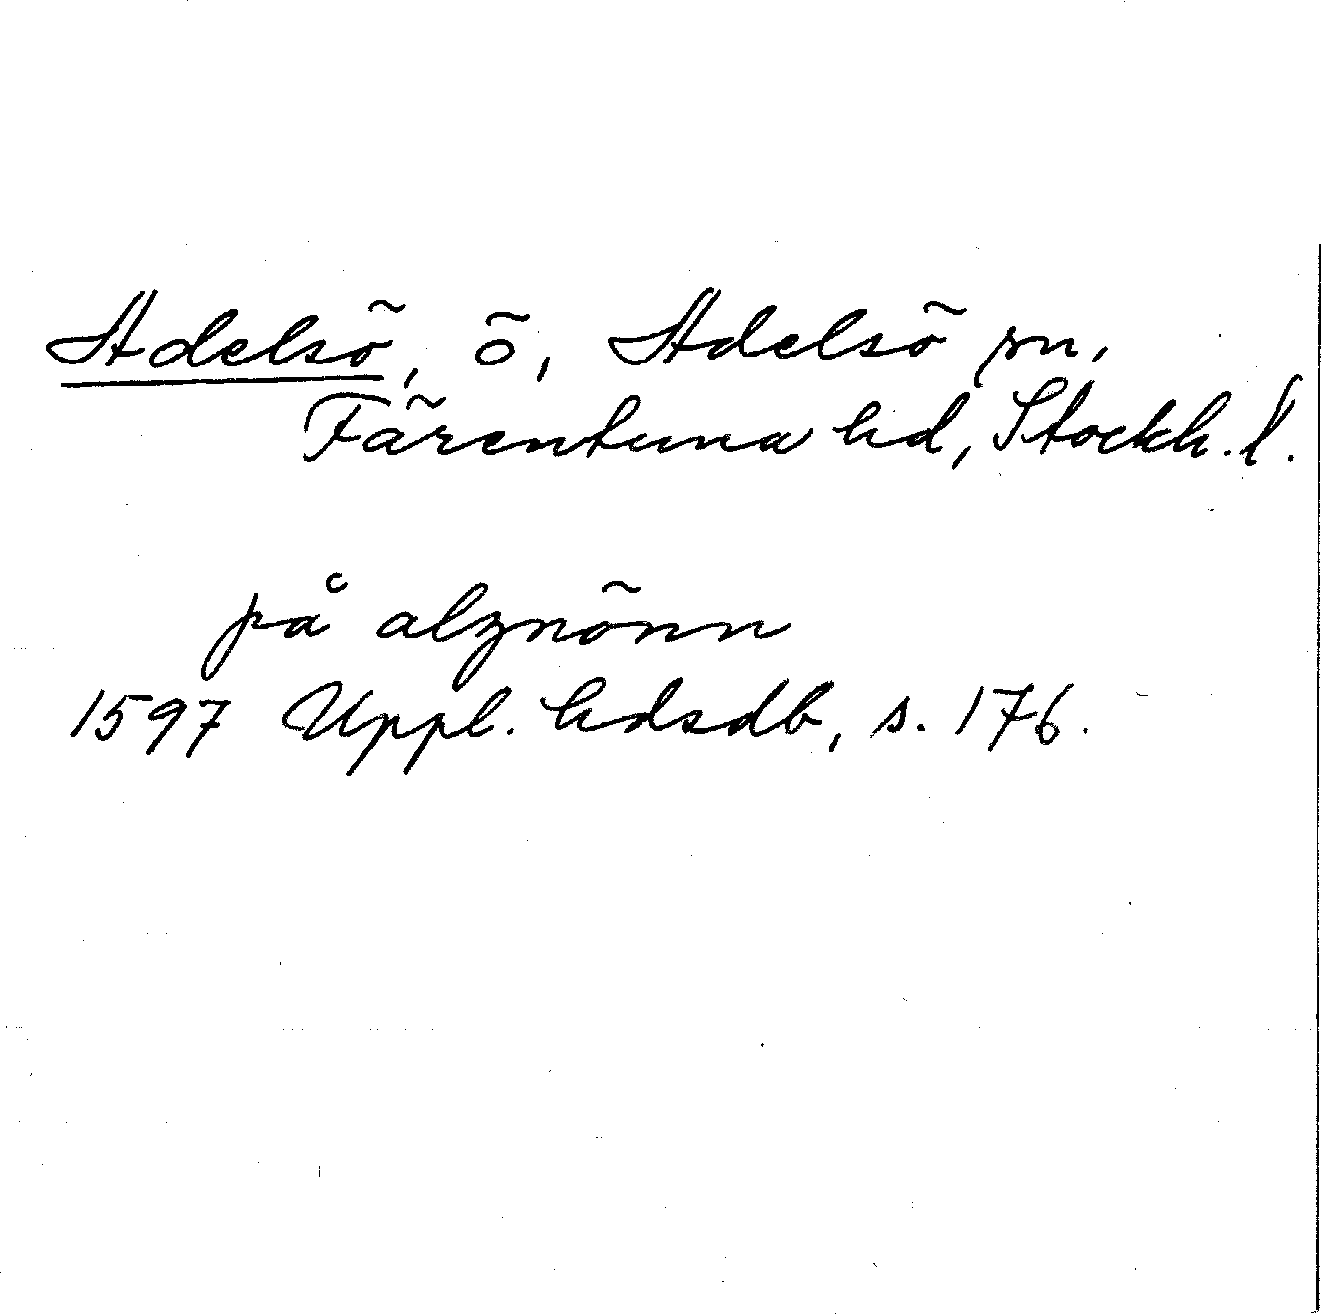 Adelsö, ö, Adelsö sn,
Färentuna hd, Stockh. l.
på alznönn
1597 Uppl. hdsdb, s. 176.